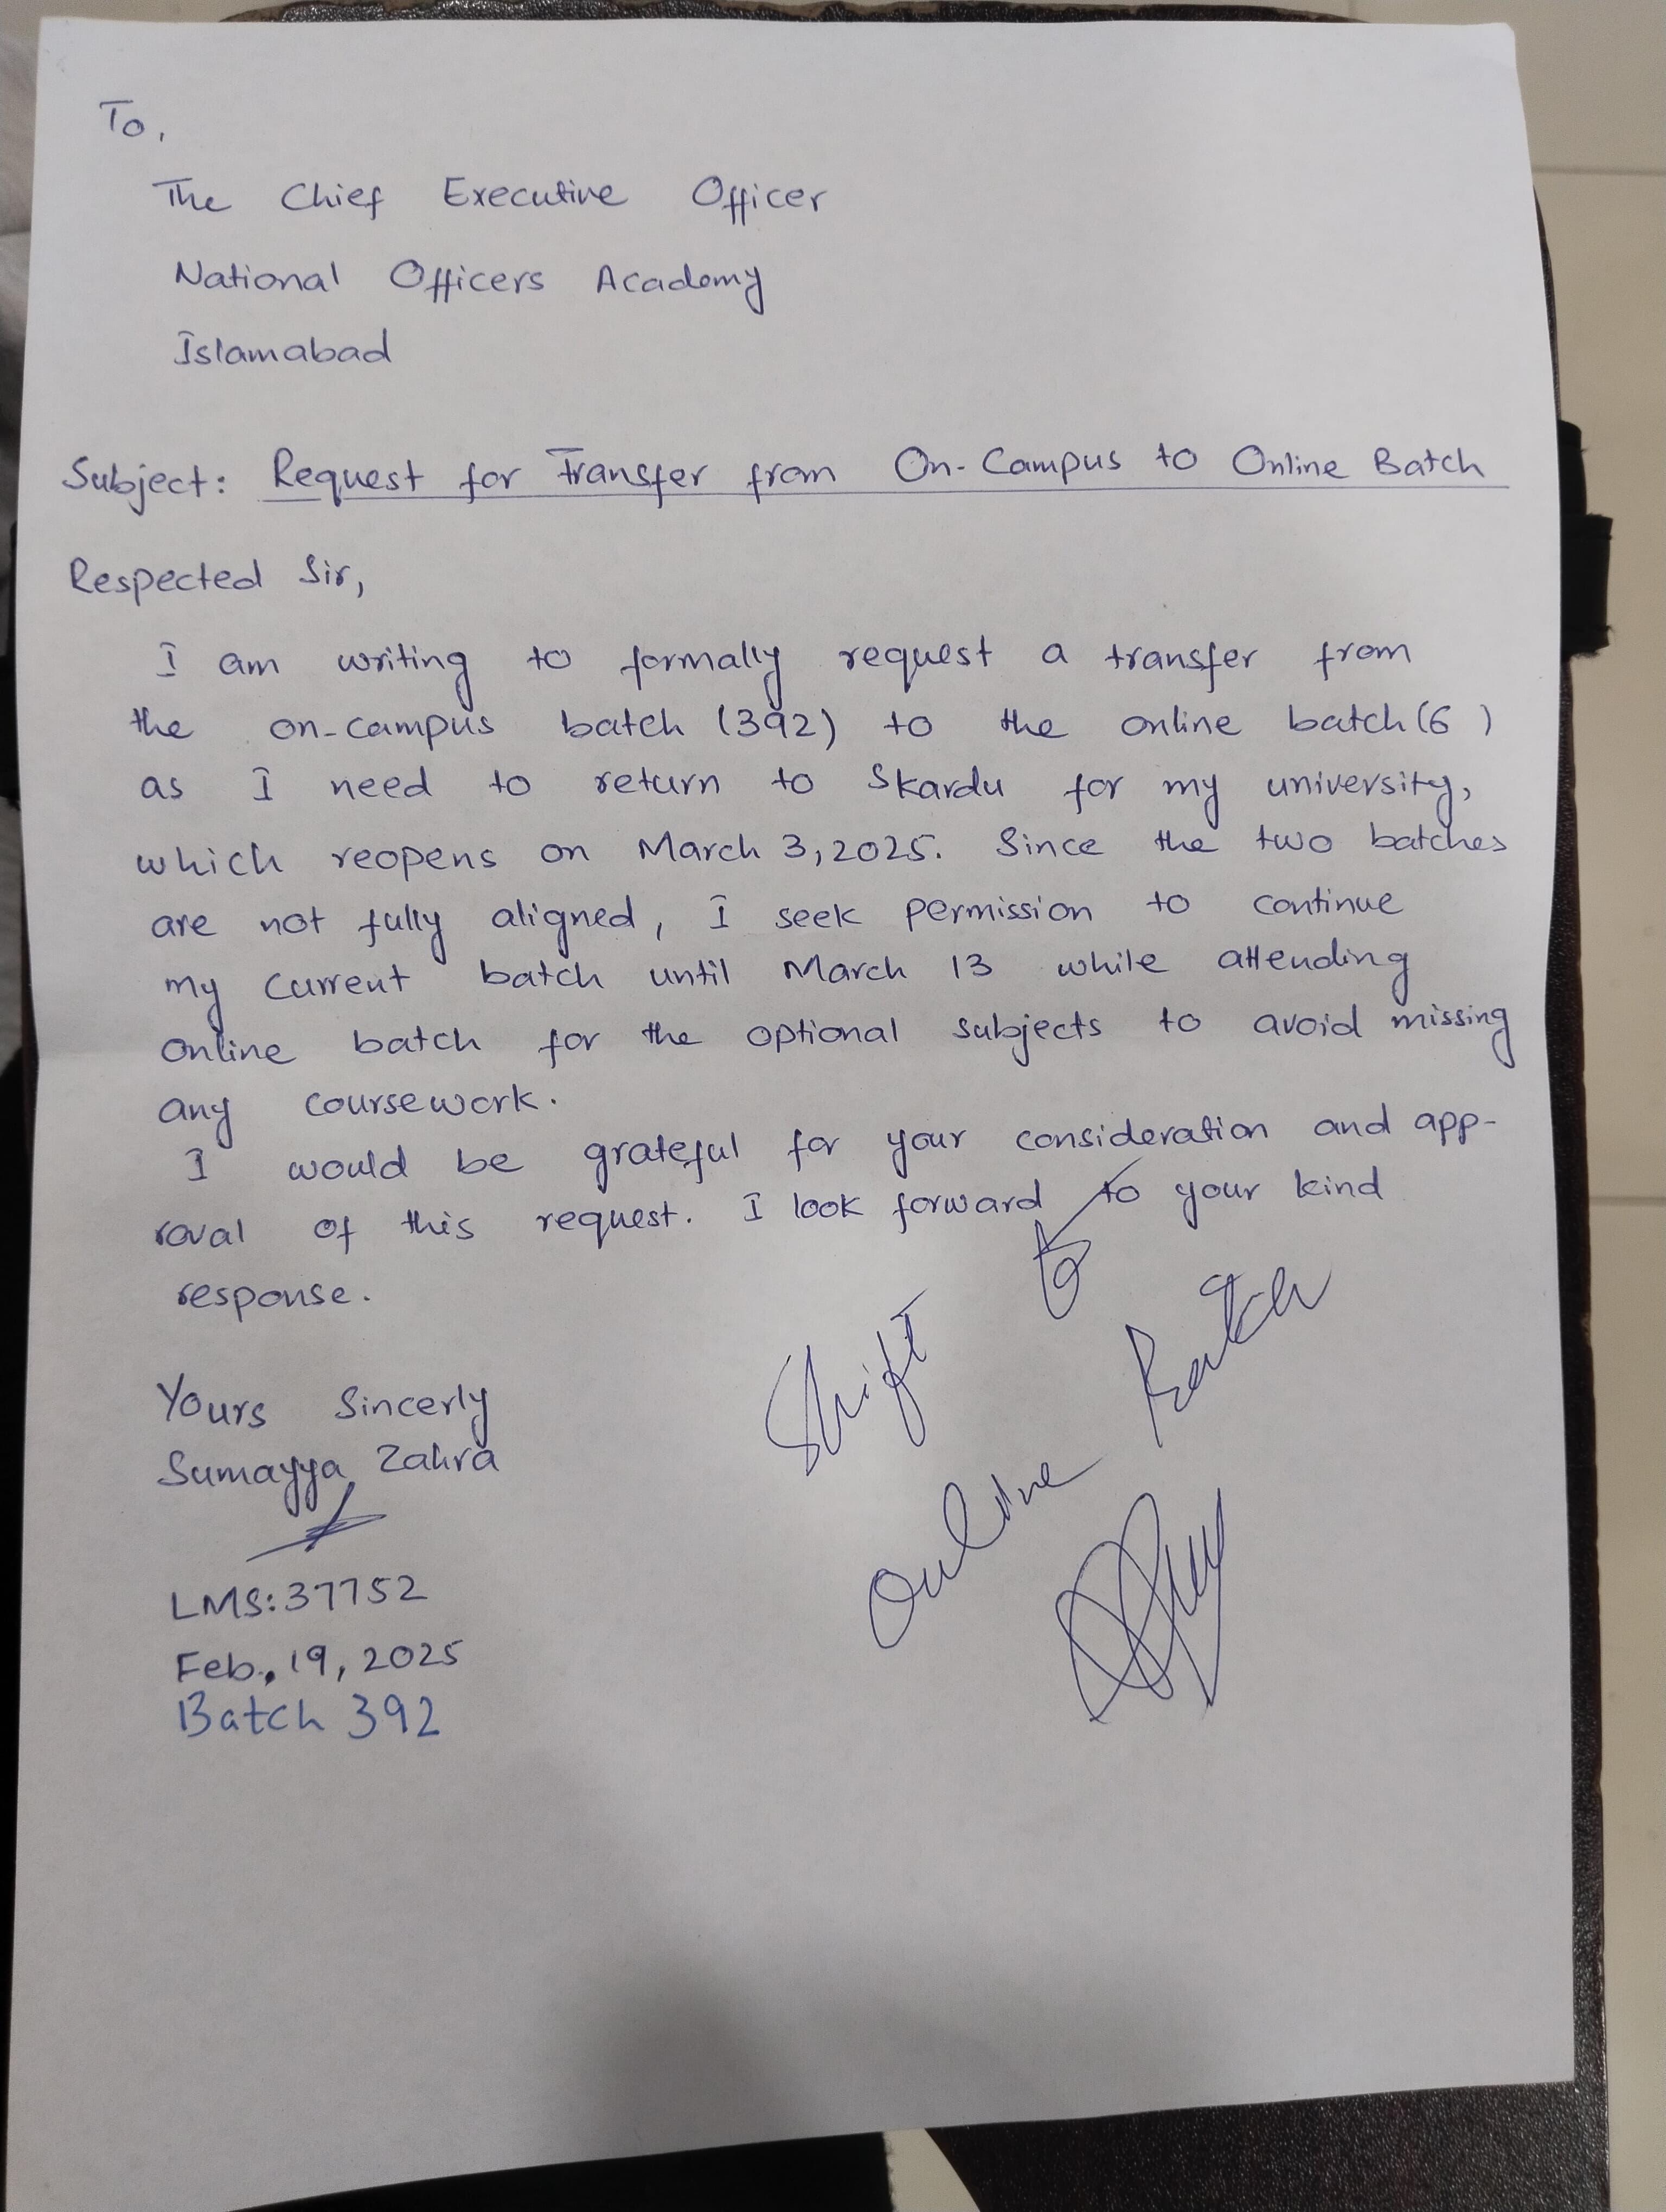 To,
The Chief Executive Officer
National Officers Academy
Islamabad
Subject: Request for Transfer from On-Campus to Online Batch
Respected Sir,
I am writing to formally request a transfer from
the on-campus batch (392) to the online batch (6)
as I need to return to Skardu for my university,
which reopens on March 3, 2025. Since the two batches
are not fully aligned, I seek permission to continue
my current batch until March 13 while attending
online batch for the optional subjects to avoid missing
any coursework.
I would be grateful for your consideration and app-
roval of this request. I look forward to your kind
response.
Yours Sincerly
Sumayya Zahra
LMS: 37752
Feb., 19, 2025
Batch 392
Shift to
Online Batch